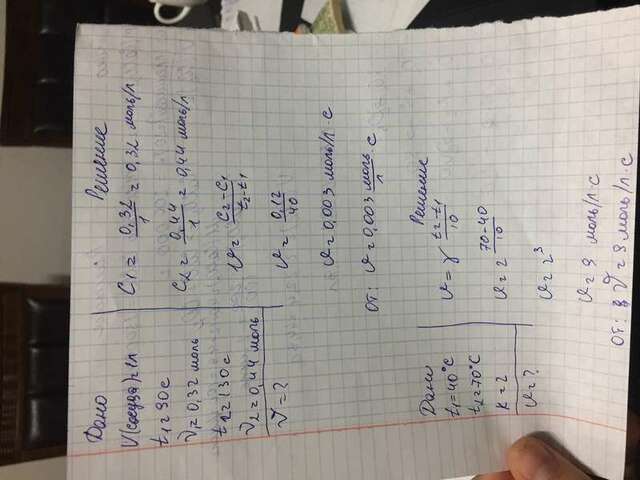 Дано
V(сосуда) = 1л
t₁ = 90с
ν₁ = 0,32 моль
t₂ = 130с
ν₂ = 0,44 моль
V = ?
Решение
C₁ = 0,32/1 = 0,32 моль/л
C₂ = 0,44/1 = 0,44 моль/л
υ = C₂-C₁/t₂-t₁
υ = 0,12/40
υ = 0,003 моль/л·с
от: υ = 0,003 моль/л·с
Дано
t₁ = 40°C
t₂ = 70°C
k = 2
υ = ?
Решение
υ = γ^(t₂-t₁/10)
υ = 2^(70-40/10)
υ = 2³
υ = 9 моль/л·с
от: υ = 9 моль/л·с